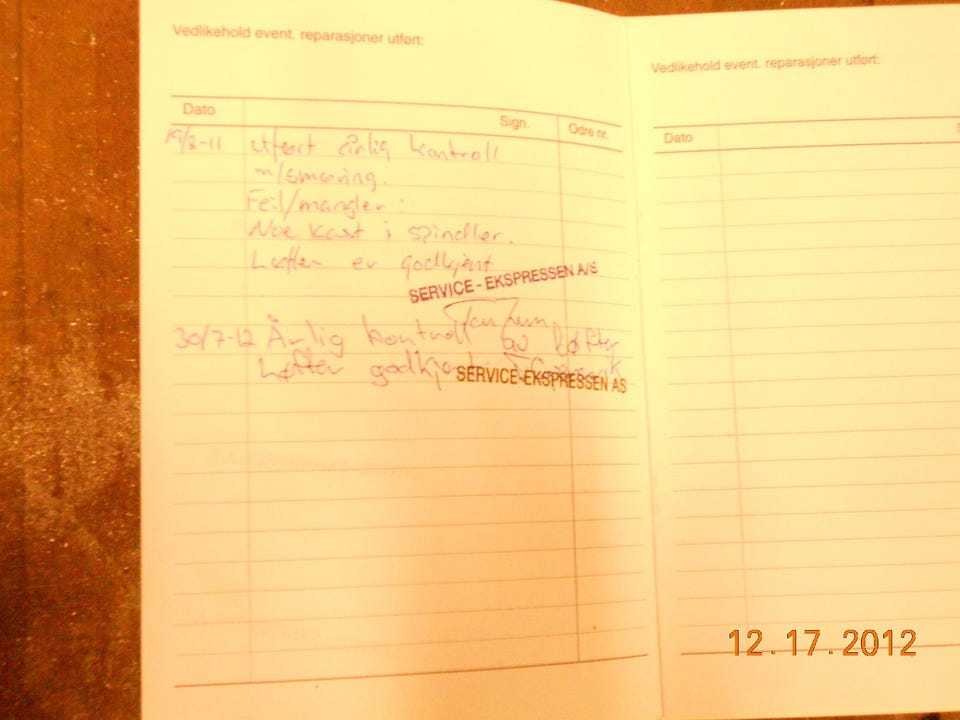 Vedlikehold event. reparasjoner utført:
Dato Sign. Odre nr.
19/8-11 Utført årlig kontroll
m/smøring.
Feil/mangler:
Noe kast i spindler.
Løfter er godkjent
SERVICE - EKSPRESSEN A/S
30/7-12 Årlig kontroll av løfter
Løfter godkjent
SERVICE-EKSPRESSEN AS
Vedlikehold event. reparasjoner utført:
Dato S
12.17.2012